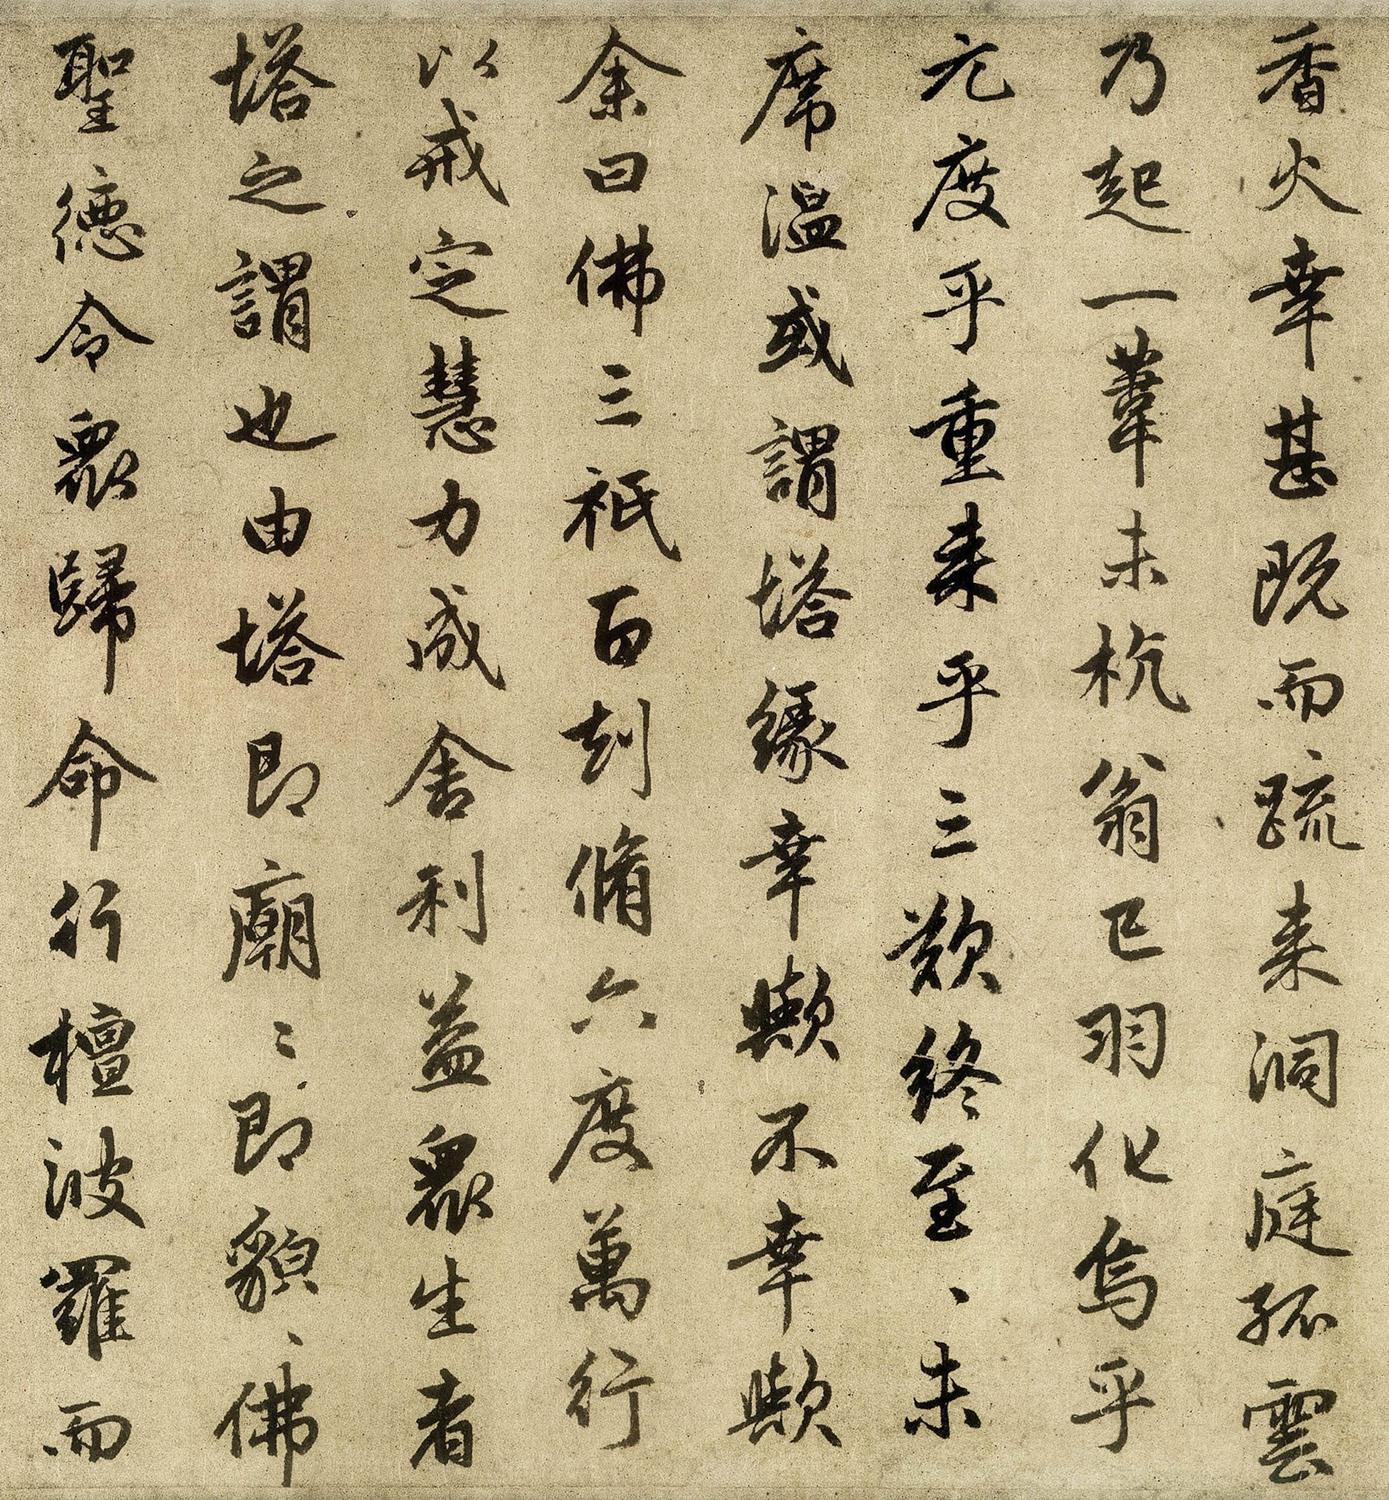 香火幸甚既而疏来洞庭孤雲
乃起一葦未杭翁已羽化烏乎
元度乎重来乎三歎終至、未
席溫或謂塔緣幸歟不幸歟
余曰佛三祇百刧脩六度萬行
以戒定慧力成舍利益衆生者
塔之謂也由塔即廟〻即貌、佛
聖德令衆歸命行檀波羅而